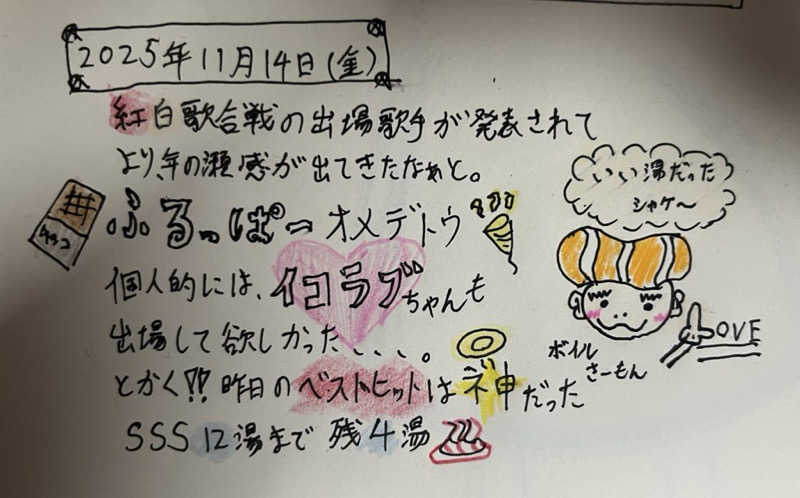 2025年11月14日(金)
紅白歌合戦の出場歌手が発表されて
より、年の瀬感が出てきたなぁと。
いい湯だった
シャケ〜
チョコ
ふるっぱーオメデトウ
個人的には、イコラブちゃんも
出場して欲しかった、、、。
LOVE
ボイル
さーもん
とかく!!昨日のベストヒットはネ申だった
SSS12湯まで残4湯